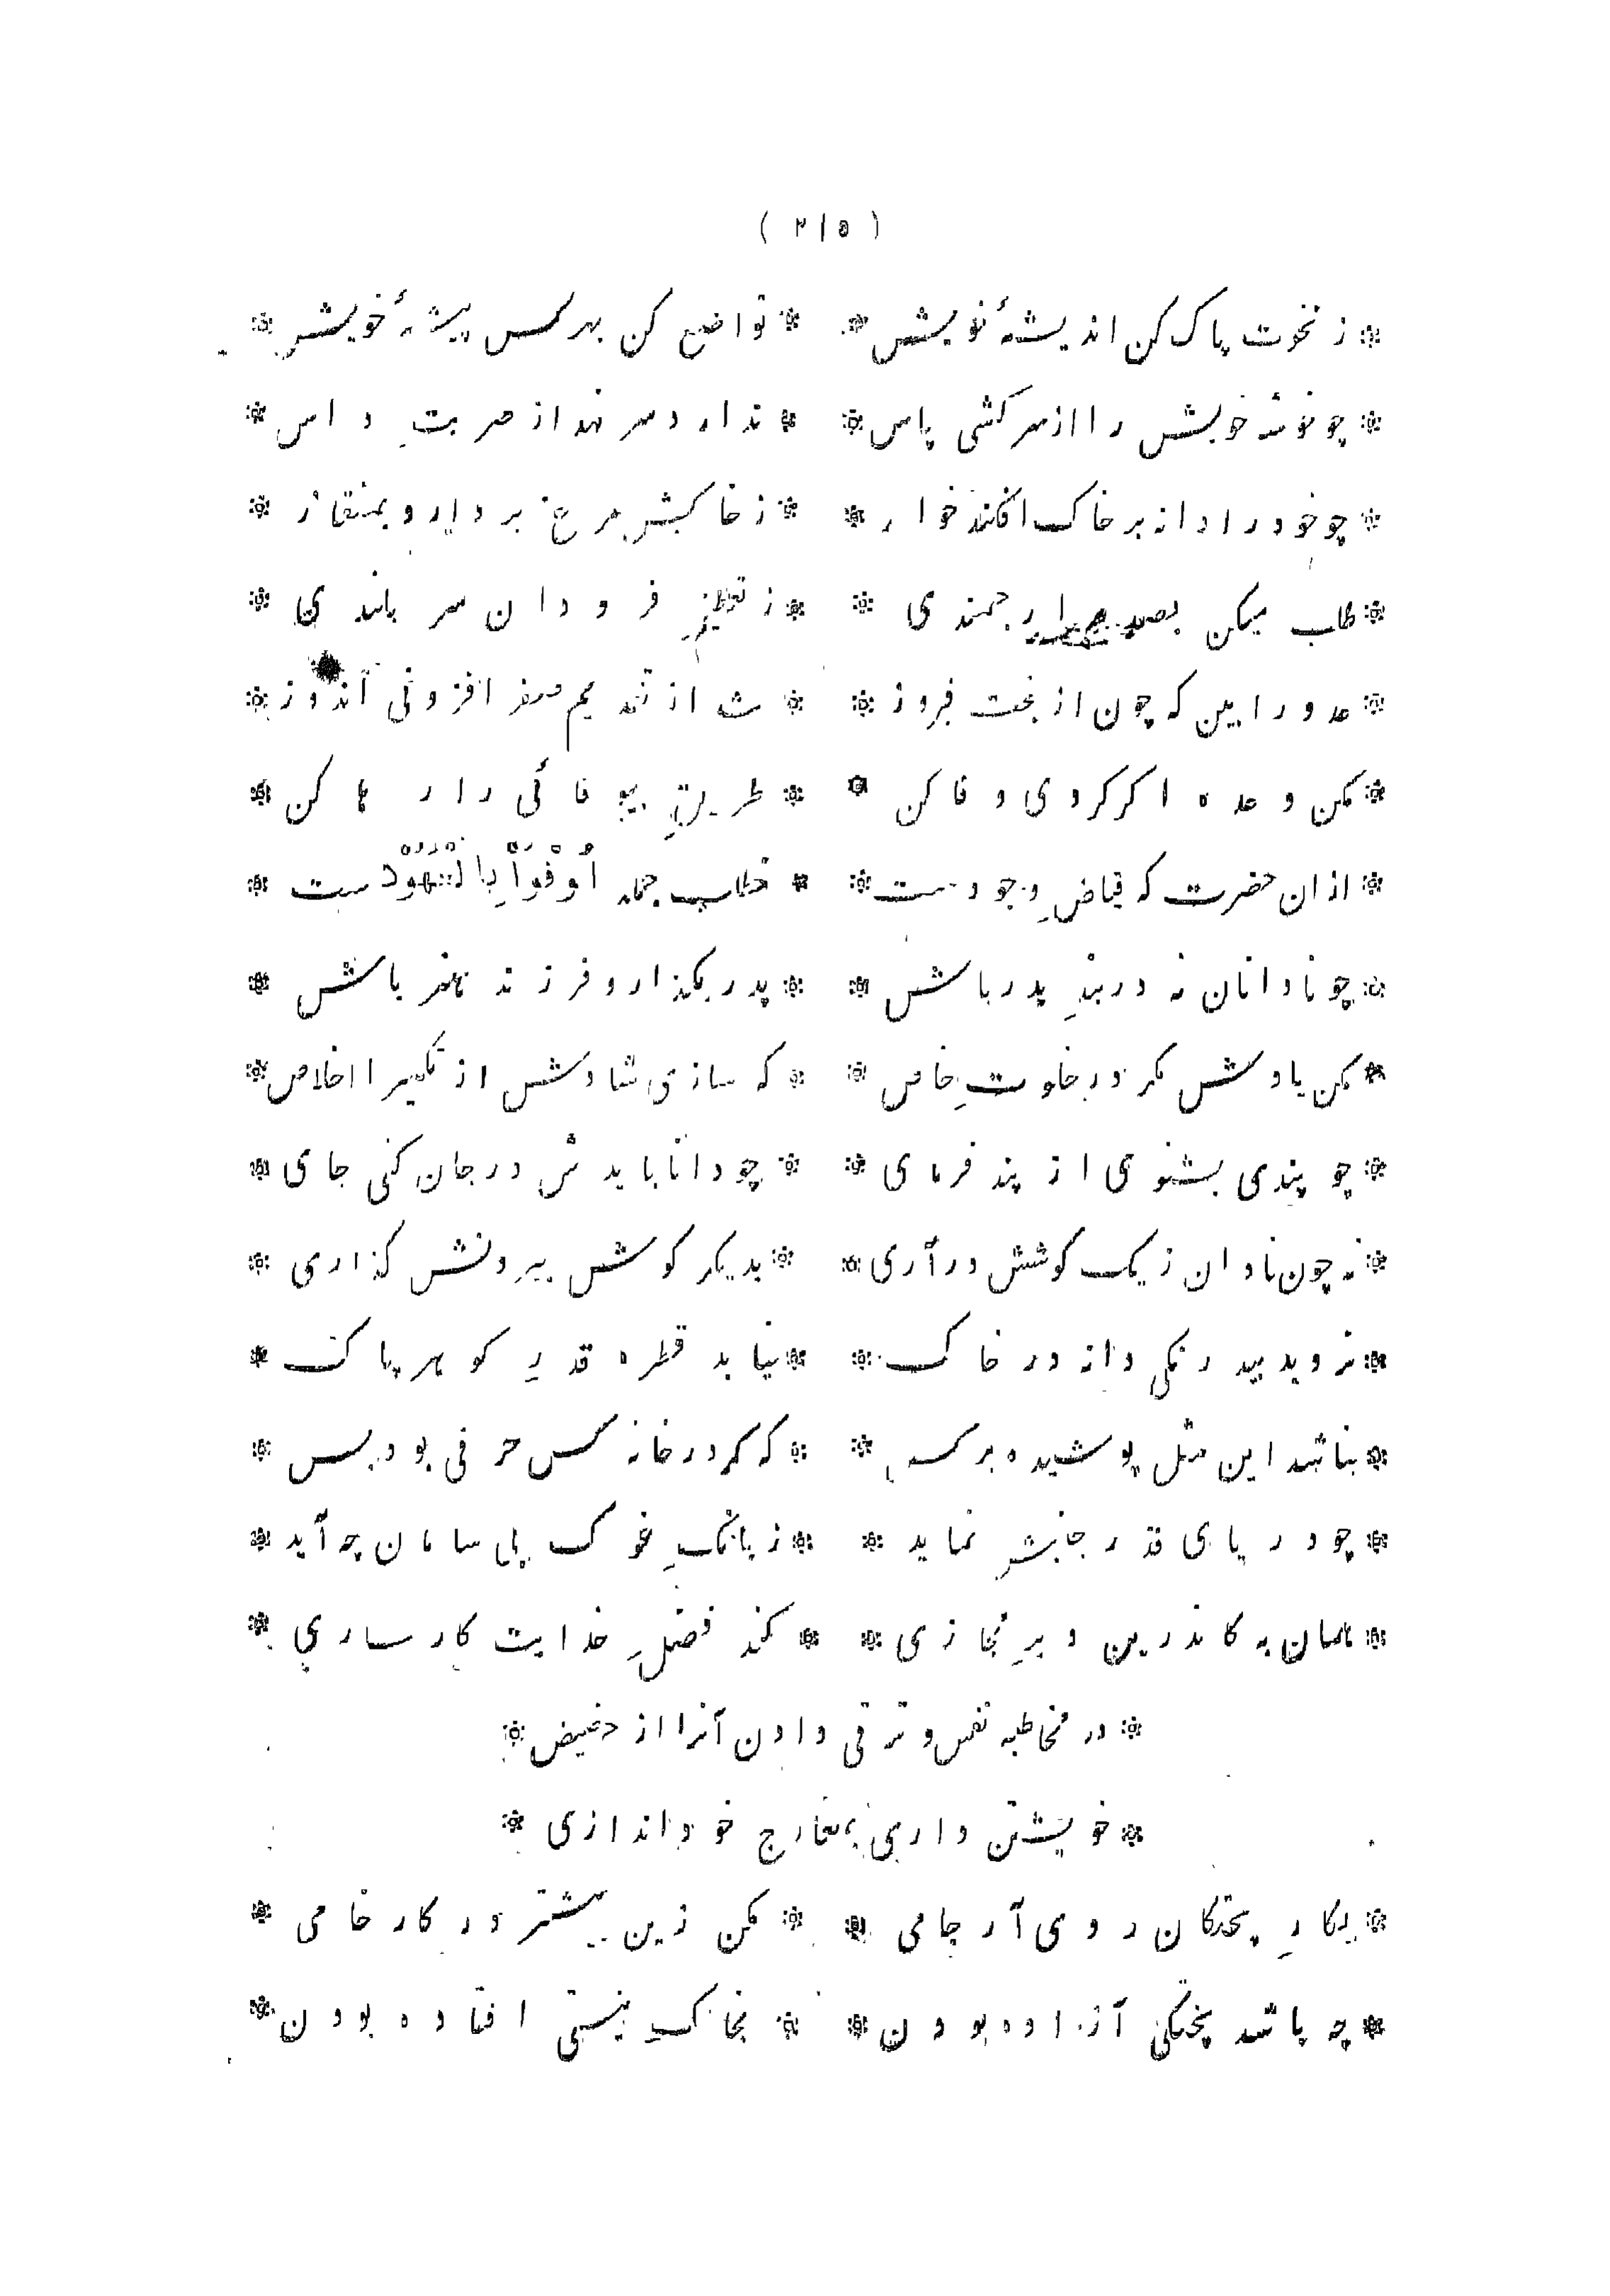 ( ۲۱۵ )
* ز نخوت پاک کن اندیشهٔ خویش * * تواضع کن بهر کس پیشهٔ خویش *
* چو خوشه خویش را از سرکشی پاس * * ندارد سر نهد از ضربتِ داس *
* چو خود را دانه بر خاک افکند خوار * * ز خاکش مرغ بردارد بمنقار *
* طلب میکن بصدر ارجمندی * * ز تعظیمِ فرودان سربلندی *
* عدد را بین که چون از بخت فیروز * * شد از تقدیم صفر افزونی آندوز *
* مکن وعده اگر کردی وفا کن * * طریقِ بیوفائی را رها کن *
* ازان حضرت که فیاضِ وجودست * * خطاب جمله اُوْفُوْا بِالْعُهُوْدست *
* چو نادانان نه در بندِ پدر باش * * پدر بگذار و فرزند هنر باش *
* مکن یادش مگر در خلوتِ خاص * * که سازی شادش از تکبیر اخلاص *
* چو پندی بشنوی از پند فرمای * * چو دانا بایدش در جان کنی جای *
* نه چون نادان ز یک گوشش درآری * * بدیگر گوش بیرونش گذاری *
* نروید بیدرنگی دانه در خاک * * نیابد قطره قدرِ گوهر پاک *
* نباشد این مثل پوشیده بر کس * * که گر در خانه کس حرفی بود بس *
* چو دریای قدر جنبش نماید * * ز بانگِ غوک بی سامان چه آید *
* همان به کاندرین دیرِ مجازی * * کند فضلِ خدایت کارسازی *
* در مخاطبه نفس و ترقی دادن آنرا از حضیض *
* خویشتن داری بمعارج خود اندازی *
* بکارِ پختگان روی آر جامی * * مکن زین بیشتر در کار خامی *
* چه باشد پختگی آزاده بودن * * بخاکِ نیستی افتاده بودن *